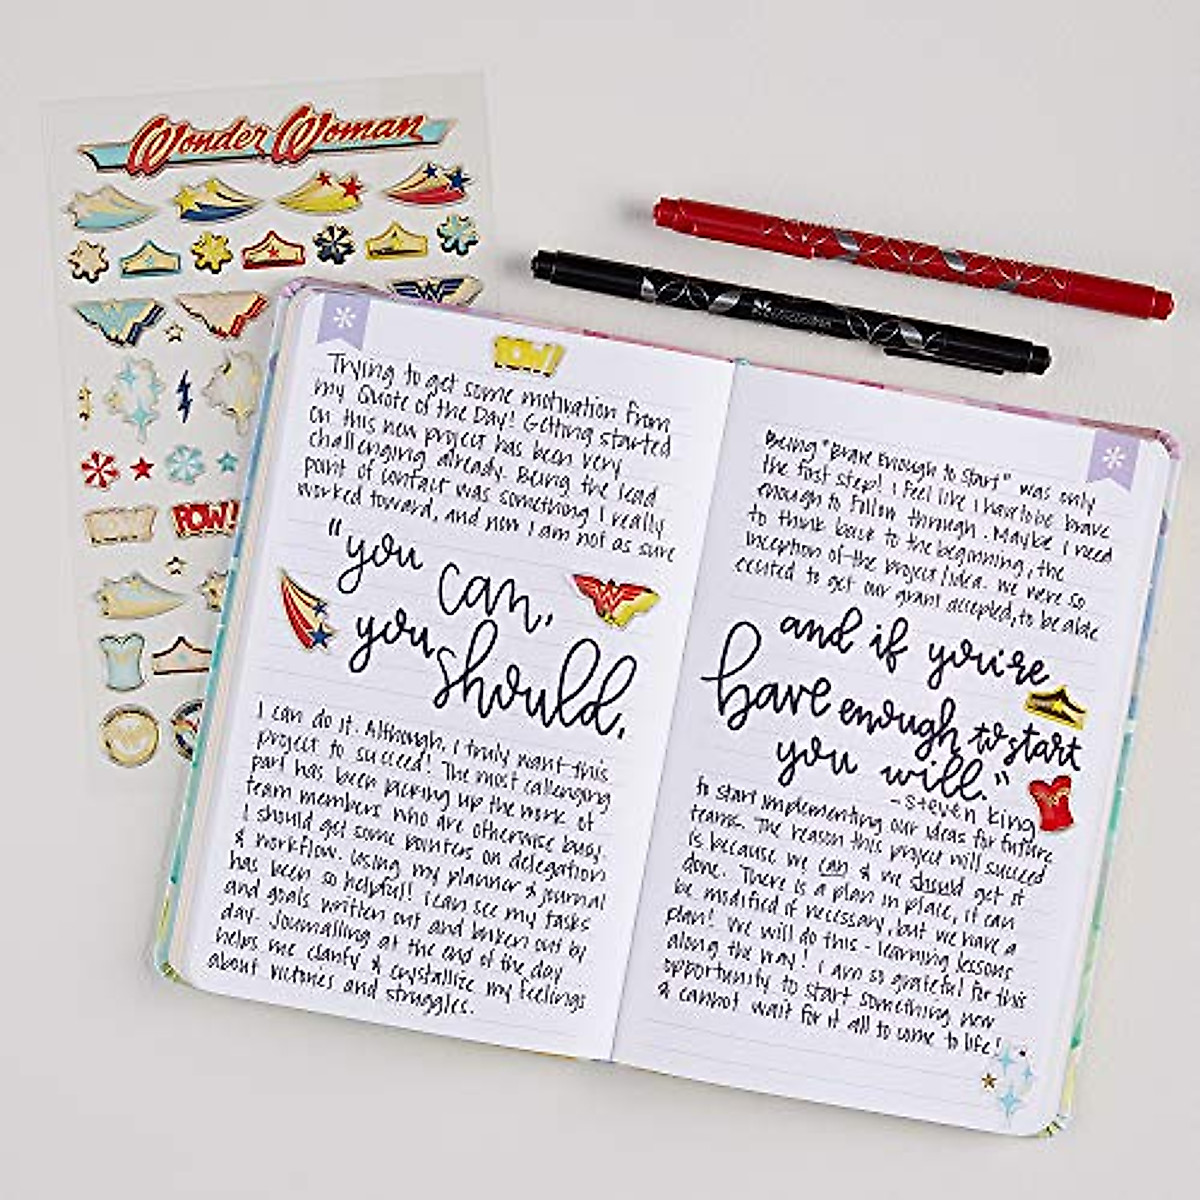 Wonder Woman
POW!
POW!
POW!
Trying to get some motivation from
my Quote of the Day! Getting started
on this new project has been very
challenging already. Being the lead
point of contact was something I really
worked toward, and now I am not as sure
"you can,
you should,
I can do it. Although, I truly want this
project to succeed! The most callenging
part has been picking up the work of
team members who are otherwise busy.
I should get some pointers on delegation
& workflow. Using my planner & journal
has been so helpful! I can see my tasks
and goals written out and broken out by
day. Journalling at the end of the day
helps me clarify & crystallise my feelings
about victories and struggles.
Being "Brave Enough to Start" was only
the first step! I feel like I have to be brave
enough to follow through. Maybe I need
to think back to the beginning, the
inception of the project/idea. We were so
excited to get our grant accepted, to be able
and if you're
brave enough to start
you will."
- Steven King
to start implementing our ideas for future
teams. The reason this project will succeed
is because we can & we should get it
done. There is a plan in place, it can
be modified if necessary, but we have a
plan! We will do this - learning lessons
along the way! I am so grateful for this
opportunity to start something new
& cannot wait for it all to come to life!